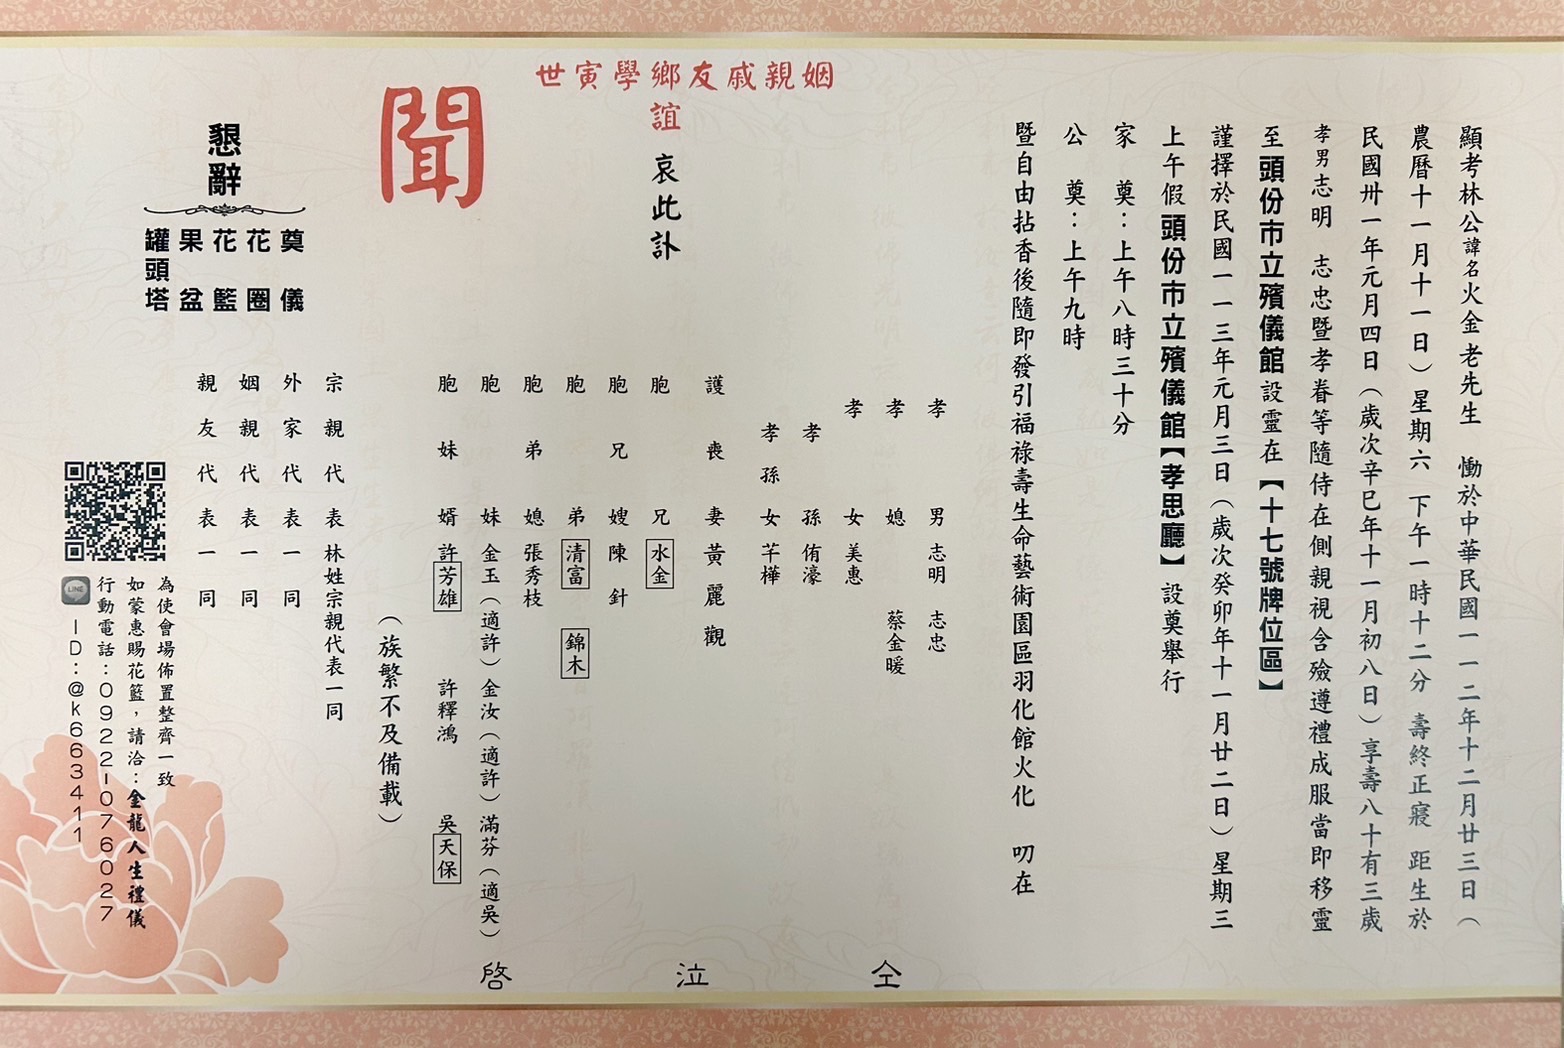 顯考林公諱名火金老先生　慟於中華民國一一二年十二月廿三日（
農曆十一月十一日）星期六　下午一時十二分　壽終正寢　距生於
民國卅一年元月四日（歲次辛巳年十一月初八日）享壽八十有三歲
孝男志明　志忠暨孝眷等隨侍在側親視含殮遵禮成服當即移靈
至頭份市立殯儀館設靈在【十七號牌位區】
謹擇於民國一一三年元月三日（歲次癸卯年十一月廿二日）星期三
上午假頭份市立殯儀館【孝思廳】設奠舉行
家　奠：上午八時三十分
公　奠：上午九時
暨自由拈香後隨即發引福祿壽生命藝術園區羽化館火化　叨在
姻親戚友鄉學寅世
誼
哀此訃
聞
孝男　志明　志忠
孝媳　蔡金暖
孝女　美惠
孝孫　侑濠
孝孫女　芊樺
護喪妻　黃麗觀
胞兄　水金
胞兄嫂　陳針
胞弟　清富　錦木
胞弟媳　張秀枝
胞妹　金玉（適許）金汝（適許）滿芬（適吳）
胞妹婿　許芳雄　許釋鴻　吳天保
（族繁不及備載）
仝　泣　啓
宗親代表　林姓宗親代表一同
外家代表一同
姻親代表一同
親友代表一同
懇辭
奠儀
花圈
花籃
果盆
罐頭塔
為使會場佈置整齊一致
如蒙惠賜花籃，請洽：金龍人生禮儀
行動電話：0922-076027
LINE
ID：@k663411